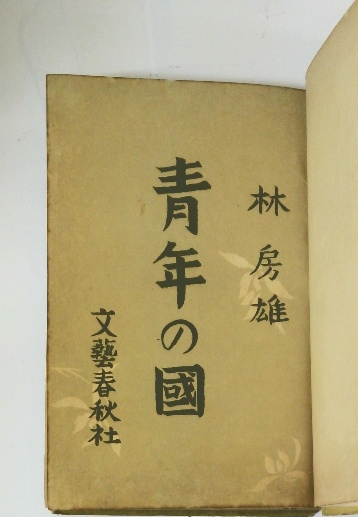 林房雄
青年の國
文藝春秋社